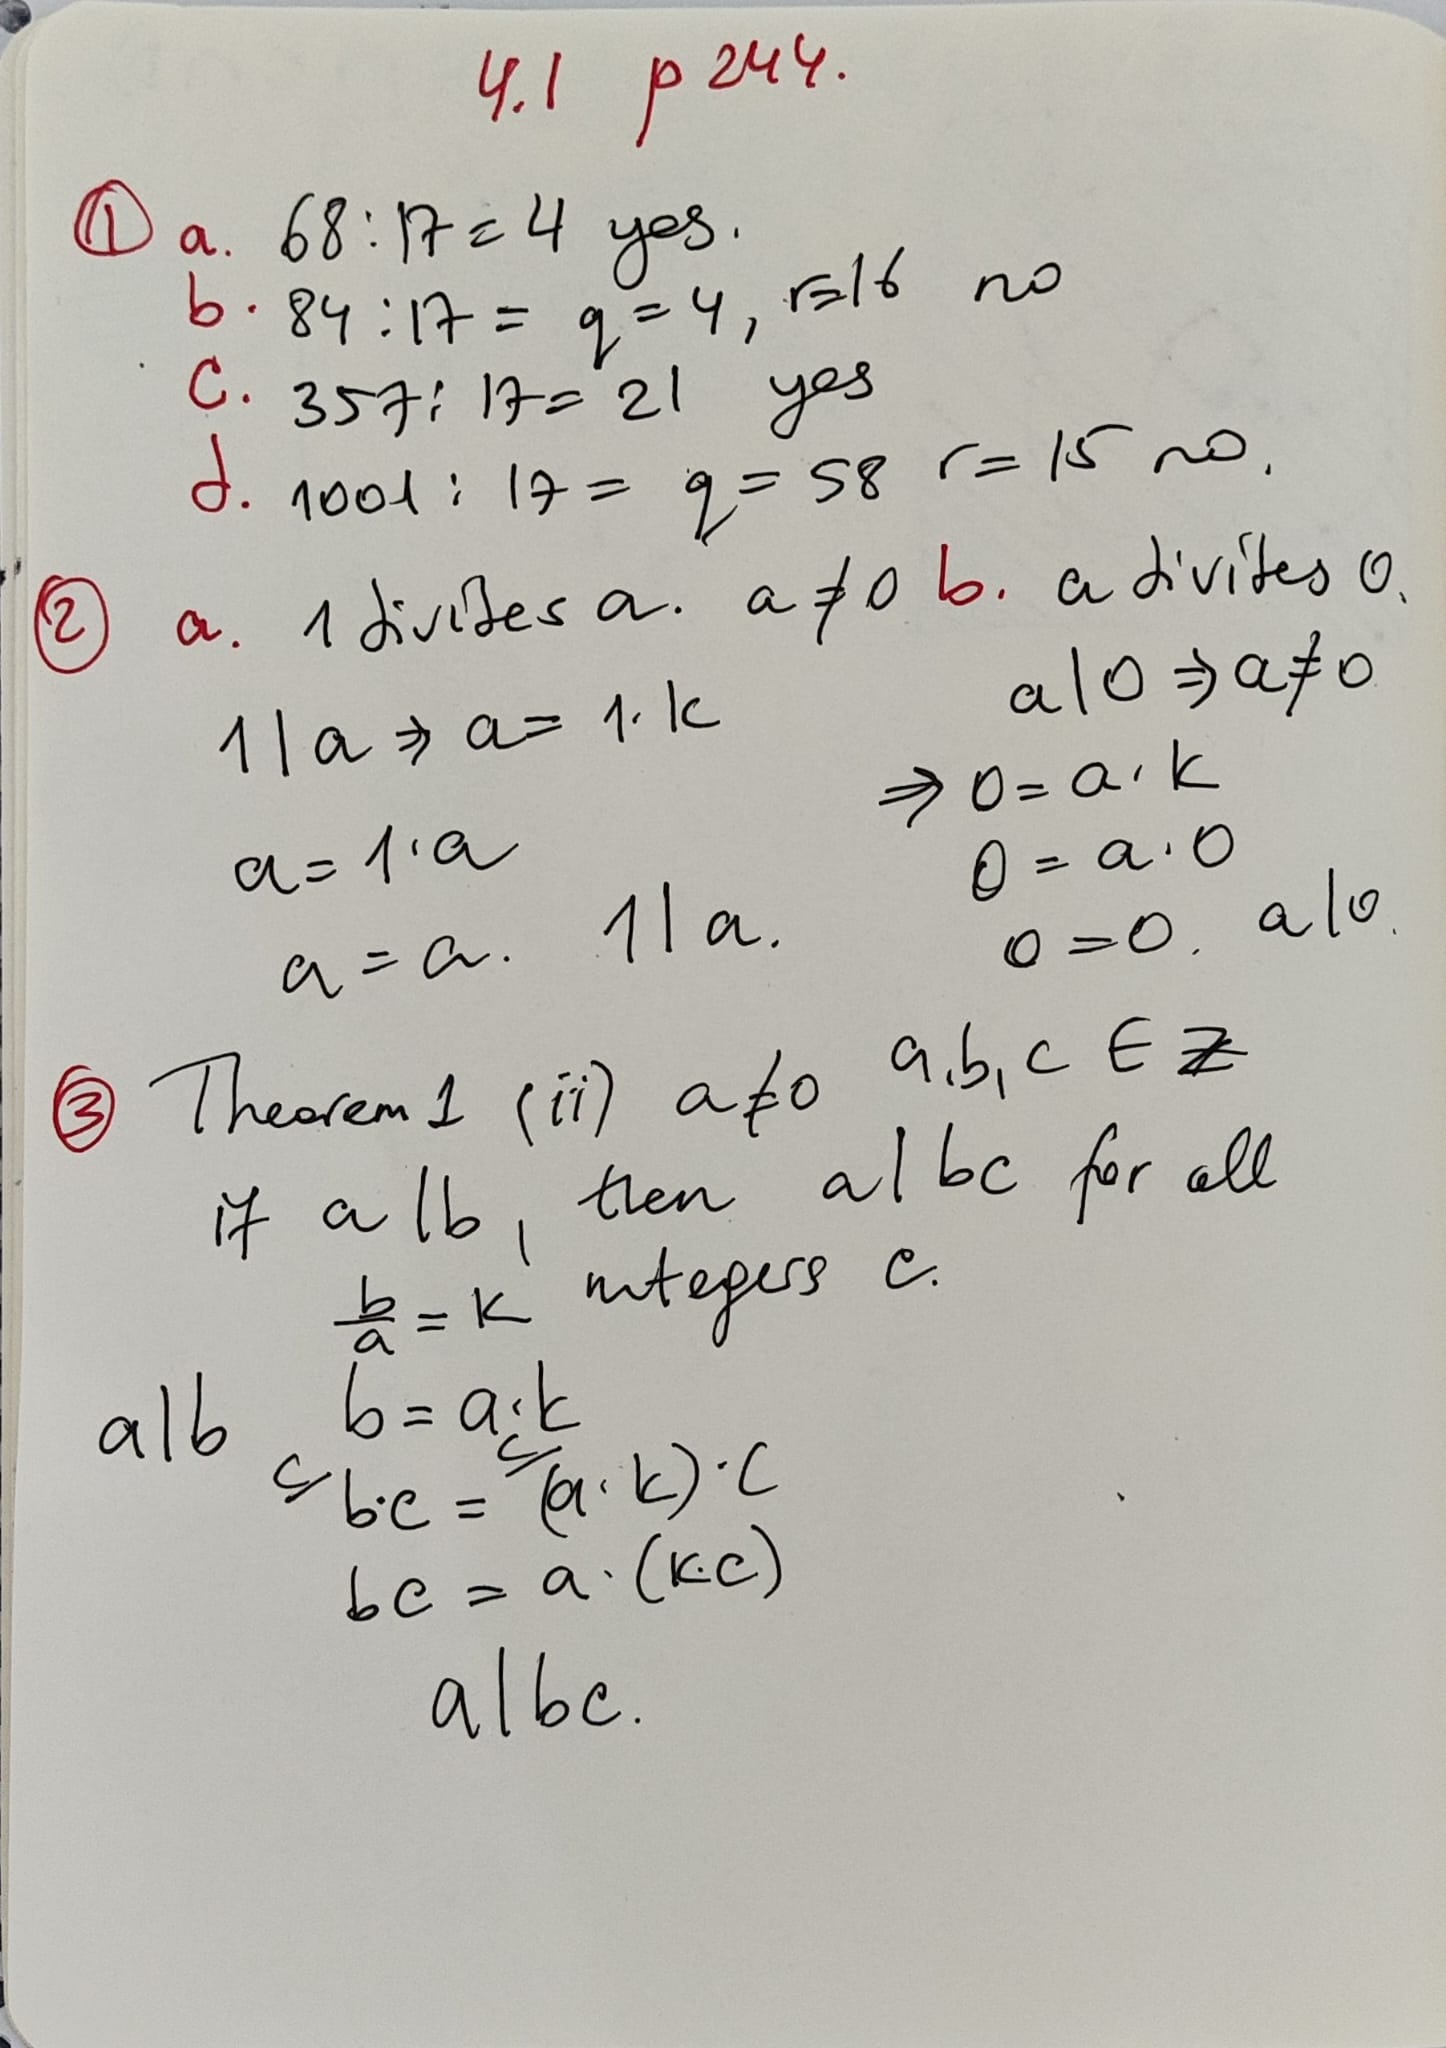 4.1 p 244.
① a. 68:17=4 yes.
b. 84:17= q=4, r=16 no
c. 357:17=21 yes
d. 1001:17= q=58 r=15 no.
② a. 1 divides a. a≠0 b. a divides 0.
1|a ⇒ a=1·k
a|0 ⇒ a≠0
⇒ 0=a·k
a=1·a
0=a·0
a=a. 1|a.
0=0. a|0.
③ Theorem 1 (ii) a≠0 a,b,c ∈ ℤ
if a|b, then a|bc for all
b/a = k integers c.
a|b b=a·k
c b·c = c (a·k)·c
bc = a·(k·c)
a|bc.